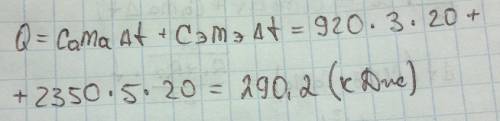 Q = CaMa Δt + CэMэ Δt = 920 · 3 · 20 +
+ 2350 · 5 · 20 = 290,2 (кДж)